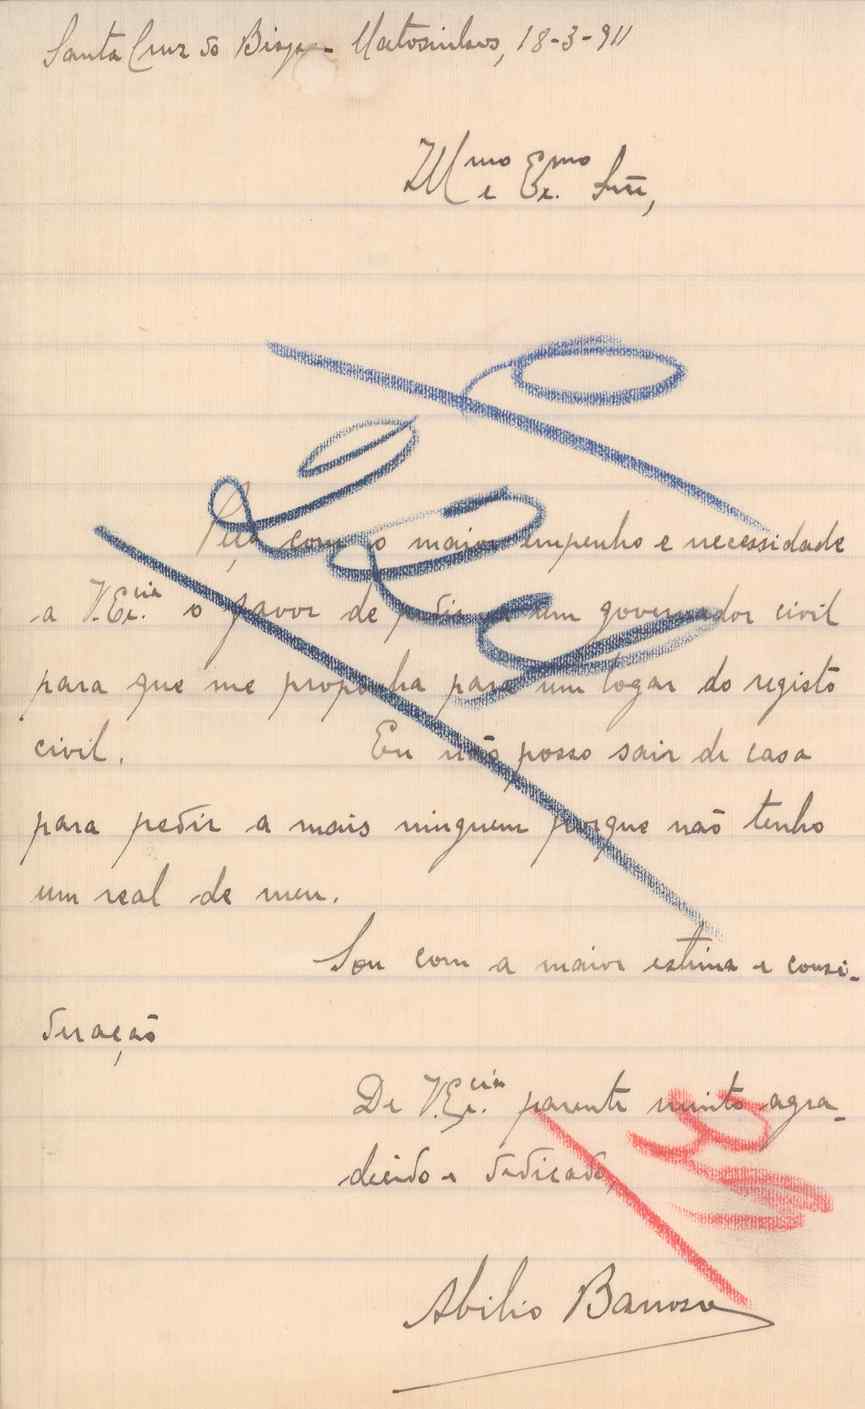 Santa Cruz do Bispo - Matosinhos, 18-3-911
Illmo e Exmo. Snr,
Peço com o maior empenho e necessidade
a V. Excia. o favor de pedir a um governador civil
para que me proponha para um logar do registo
civil. Eu não posso sair de casa
para pedir a mais ninguem porque não tenho
um real de meu.
Sou com a maior estima e consi-
deração
De V. Excia. parente muito agra-
decido e dedicado,
Abilio Barroso